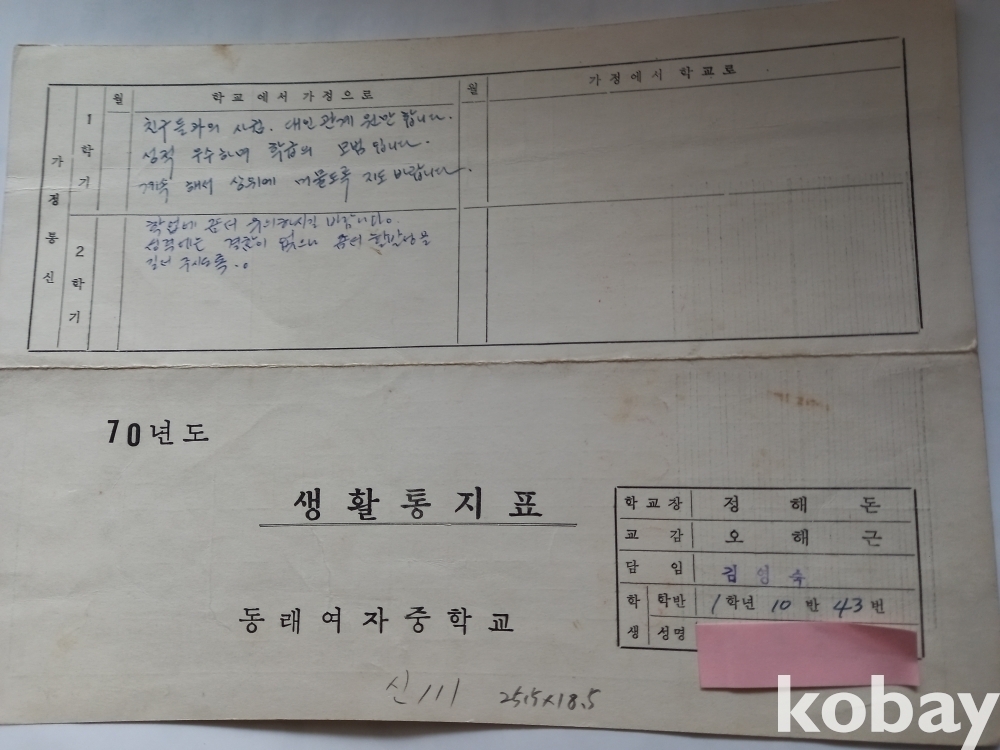 가정통신
월 학교에서 가정으로 월 가정에서 학교로
1학기
친구들과의 사귐. 대인관계 원만 합니다.
성적 우수하며 학급의 모범 입니다.
계속 해서 상위에 머물도록 지도 바랍니다.
2학기
학업에 좀더 유의하시길 바랍니다.
성적에는 결함이 없으나 좀더
길러 주시도록.
70년도
생활통지표
동래여자중학교
학교장 정해돈
교감 오해근
담임 김영숙
학생 학반 1학년 10반 43번
성명
신111 25.5×18.5
kobay